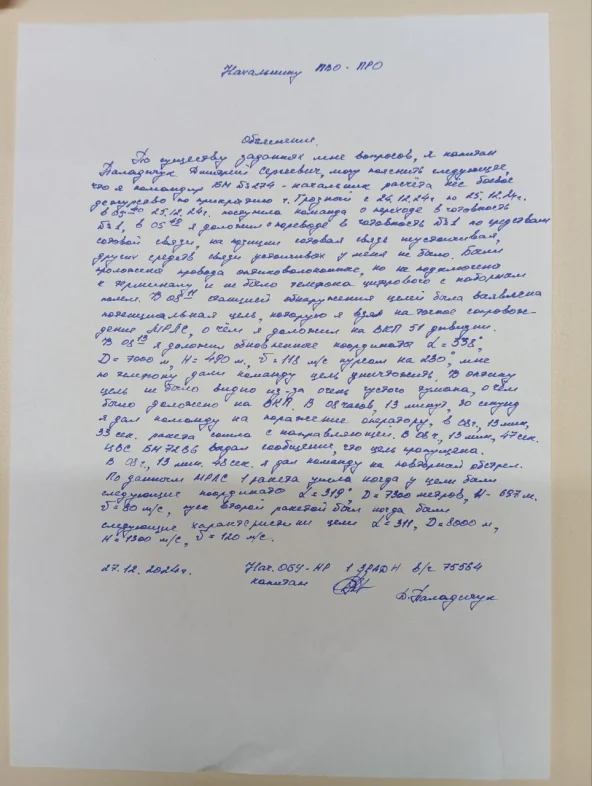 Начальнику ПВО-ПРО
Объяснение.
По существу заданных мне вопросов, я капитан
Паладичук Дмитрий Сергеевич, могу пояснить следующее,
что я командир БМ 7S274 - начальник расчёта нёс боевое
дежурство по прикрытию г. Грозной с 24.12.24г. по 25.12.24г.
в 05:40 25.12.24г. поступила команда о переходе в готовность
№1, в 05 я доложил о переводе в готовность №1 по средствам
сотовой связи, на позиции сотовая связь неустойчивая,
других средств связи устойчивых у меня не было. Были
проложена провода оптиковолоконные, но не подключена
к терминалу и не было телефона цифрового с наборным
полем. В 08:11 станцией обнаружения целей была заявлена
потенциальная цель, которую я взял на точное сопровож-
дение МРЛС, о чём я доложил на ВКП 51 дивизии.
В 08:13 я доложил обновленные координаты α = 338°,
D = 7000 м, H = 480 м, v = 113 м/с курсом на 230°, мне
по телефону дали команду цель уничтожить. В оптику
цель не было видно из-за очень густого тумана, о чём
было доложено на ВКП. В 08 часов, 13 минут, 30 секунд
я дал команду на поражение оператору, в 08ч, 13 мин,
33 сек. ракета сошла с направляющей. В 08ч, 13 мин, 47 сек.
ЦВС БМ 72В6 выдал сообщение, что цель пропущена.
В 08ч, 13 мин. 48 сек. я дал команду на повторный обстрел.
По данным МРЛС 1 ракета ушла когда у цели были
следующие координаты α = 319°, D = 7300 метров, H - 697 м.
v = 90 м/с, пуск второй ракетой был когда были
следующие характеристики цели α = 311, D = 8000 м,
H = 1300 м/с, v = 120 м/с.
27.12.2024г. Нач. ОБУ-НР 1 ЗРАДН в/ч 75564
капитан Д. Паладичук